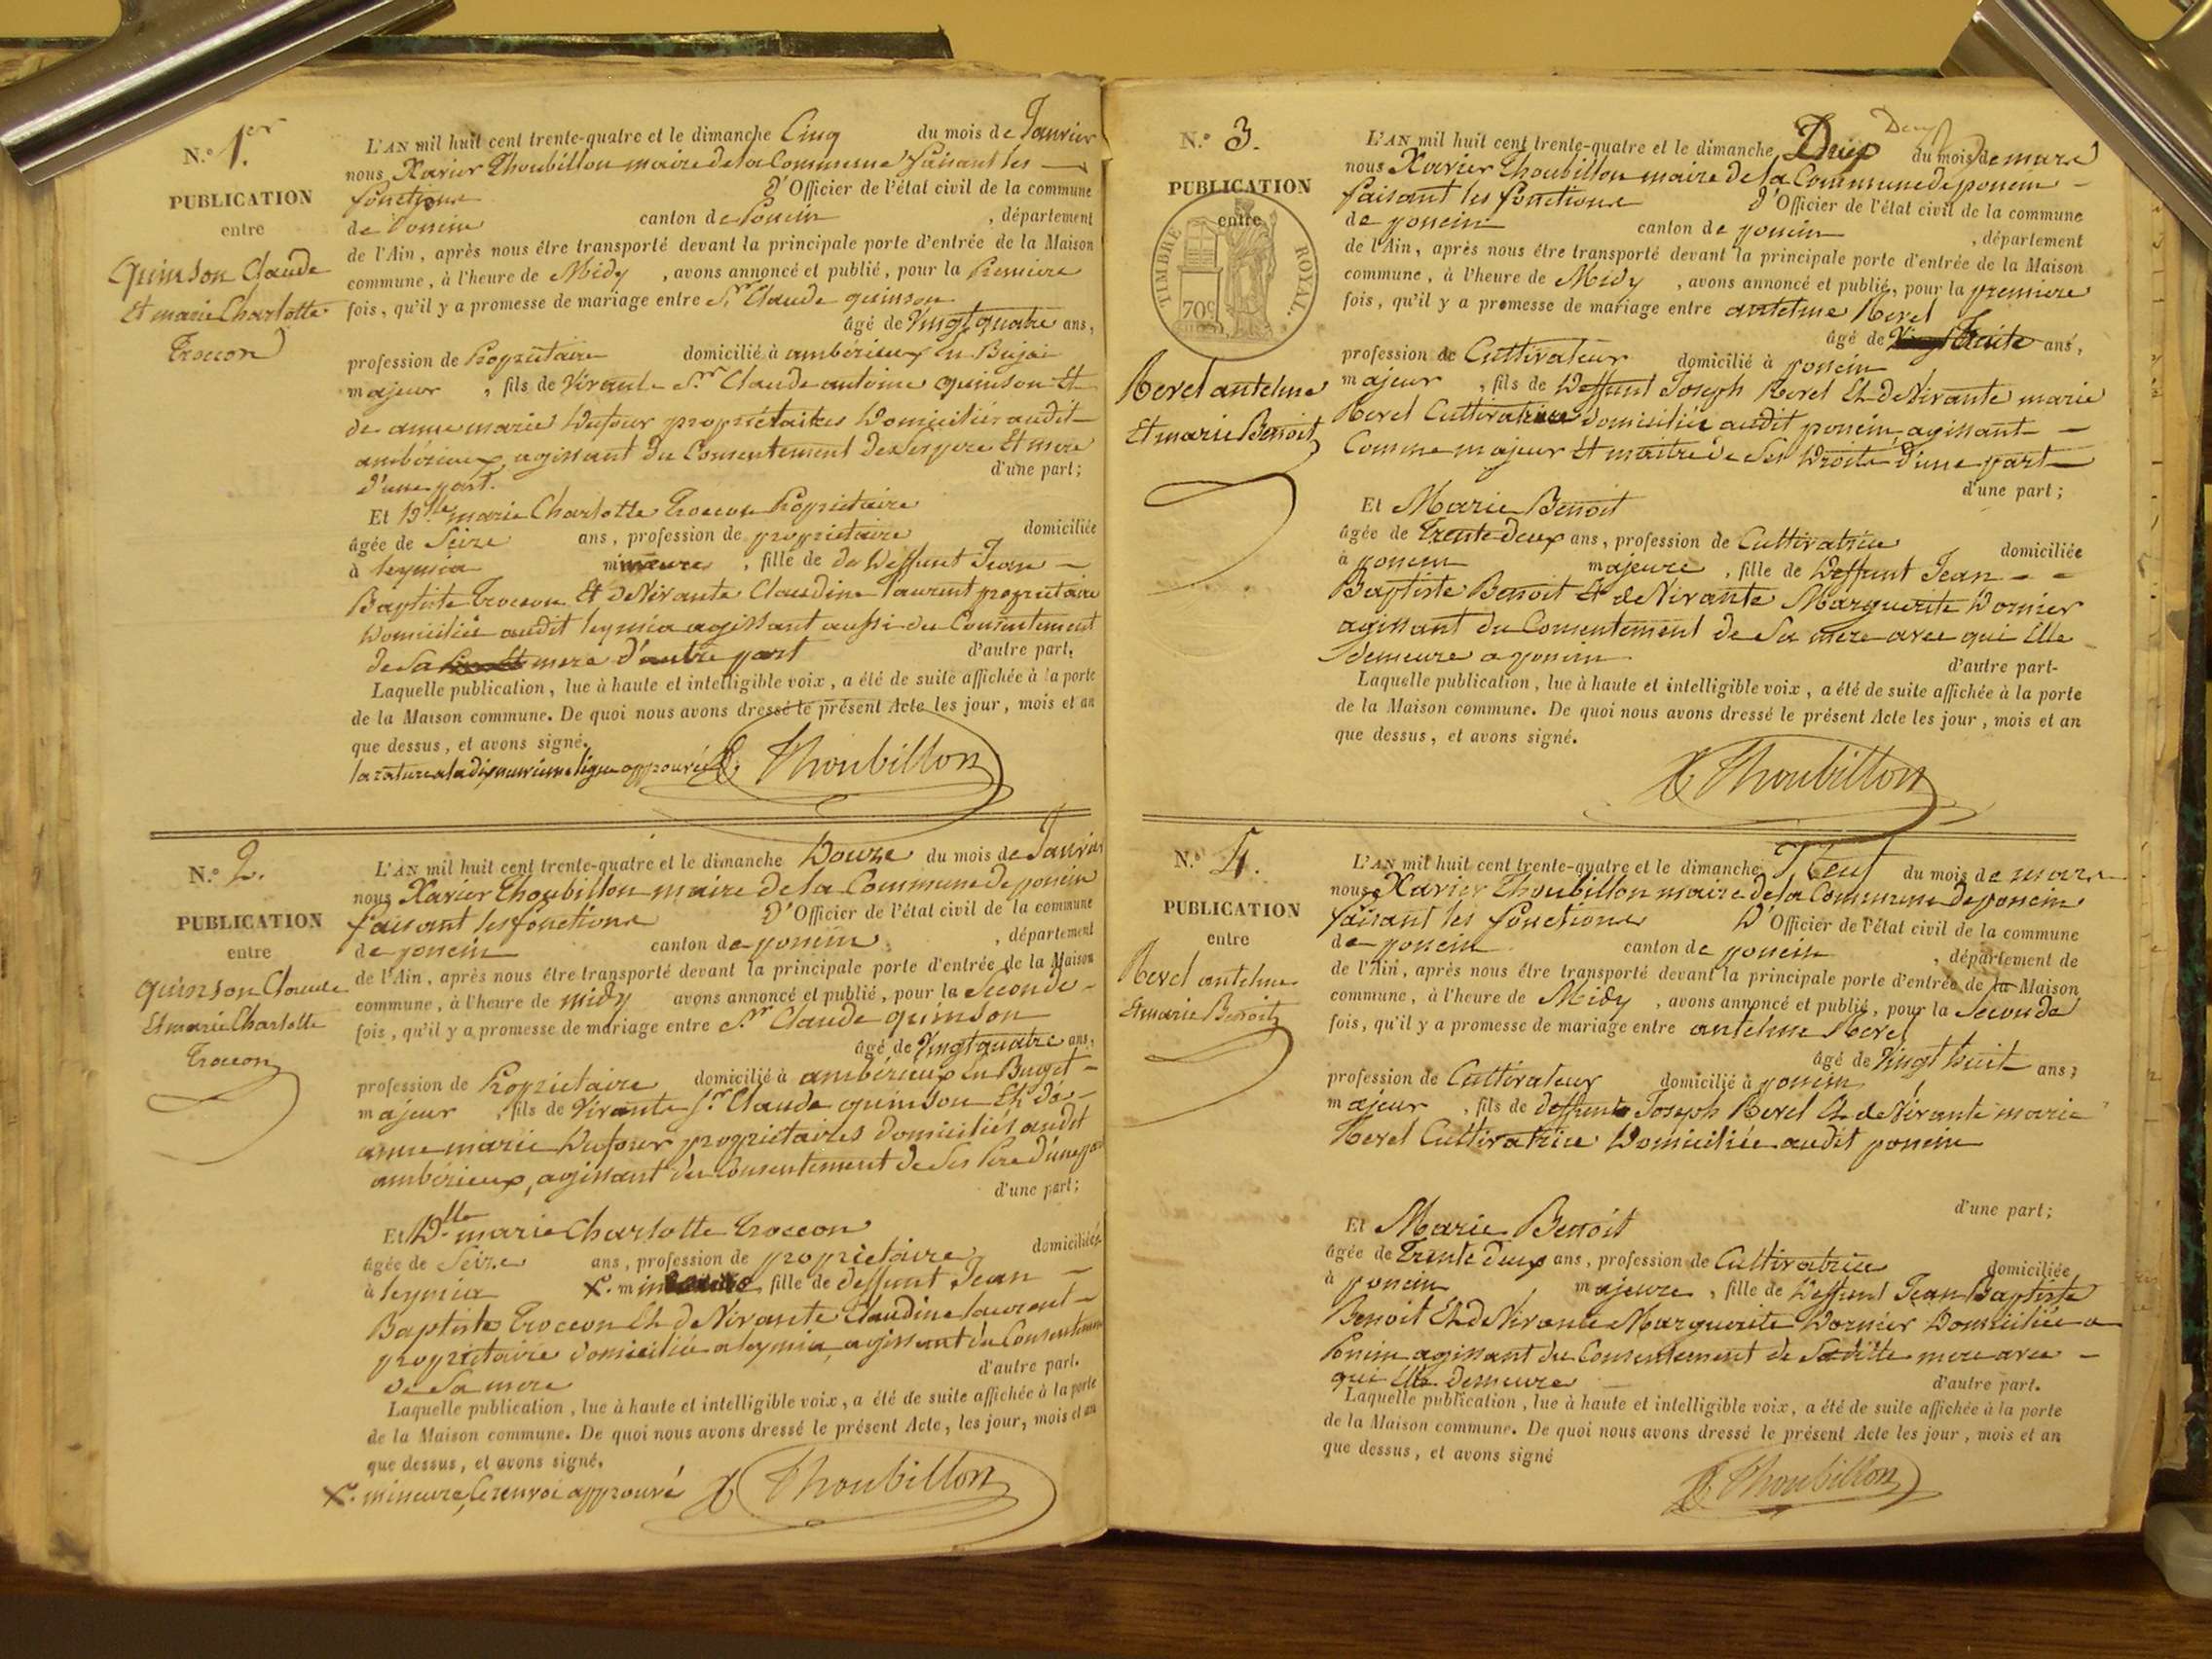 N.º 1.er
PUBLICATION
entre
quinson Claude
Et marie Charlotte
Troccon
L'AN mil huit cent trente-quatre et le dimanche Cinq du mois de Janvier
nous Xavier Thoubillon maire de la Commune faisant les
fonctions d'Officier de l'état civil de la commune
de Poncin canton de Poncin , département
de l'Ain, après nous être transporté devant la principale porte d'entrée de la Maison
commune, à l'heure de Midy , avons annoncé et publié, pour la Premiere
fois, qu'il y a promesse de mariage entre Sr Claude quinson
âgé de Vingt quatre ans,
profession de Propriétaire domicilié à ambérieux en Bujai
majeur , fils de Vivant Sr Claude antoine quinson Et
de anne marie Dufour propriétaires Domiciliés audit
ambérieux, agissant du Consentement de ses pere Et mere
d'une part. d'une part;
Et Dlle marie Charlotte Troccon Propriétaire
âgée de Seize ans, profession de propriétaire domiciliée
à leymia mineure , fille de de Deffunt Jean
Baptiste Troccon Et de Vivante Claudine laurent propriétaire
Domiciliée audit leymia agissant aussi du Consentement
de sa mere d'autre part d'autre part.
Laquelle publication, lue à haute et intelligible voix, a été de suite affichée à la porte
de la Maison commune. De quoi nous avons dressé le présent Acte les jour, mois et an
que dessus, et avons signé.
la rature a la dix neuvieme ligne approuvée X Thoubillon
N.º 2.
PUBLICATION
entre
quinson Claude
Et marie Charlotte
Troccon
L'AN mil huit cent trente-quatre et le dimanche Douze du mois de Janvier
nous Xavier Thoubillon maire de la Commune de poncin
faisant les fonctions D'Officier de l'état civil de la commune
de poncin canton de poncin , département
de l'Ain, après nous être transporté devant la principale porte d'entrée de la Maison
commune, à l'heure de midy avons annoncé et publié, pour la Seconde
fois, qu'il y a promesse de mariage entre Sr Claude quinson
âgé de Vingt quatre ans,
profession de Propriétaire domicilié à ambérieux en Buget
majeur , fils de Vivante Sr Claude quinson Et de
anne marie Dufour propriétaires domiciliés audit
ambérieux, agissant du Consentement de Ses Pere d'une part
d'une part;
Et Dlle marie Charlotte Troccon
âgée de Seize ans, profession de propriétaire domiciliée
à leymia X. fille de deffunt Jean
Baptiste Troccon Et de Vivante Claudine laurent
propriétaire domiciliée a leymia, agissant du Consentement
de Sa mere d'autre part.
Laquelle publication, lue à haute et intelligible voix, a été de suite affichée à la porte
de la Maison commune. De quoi nous avons dressé le présent Acte, les jour, mois et an
que dessus, et avons signé.
X. mineure, le renvoi approuvé X Thoubillon
N.º 3.
PUBLICATION
entre
TIMBRE ROYAL.
70c
Revel antelme
Et marie Benoit
Deux
L'AN mil huit cent trente-quatre et le dimanche Deux du mois de mars
nous Xavier Thoubillon maire de la Commune de poncin
faisant les fonctions d'Officier de l'état civil de la commune
de poncin canton de poncin , département
de l'Ain, après nous être transporté devant la principale porte d'entrée de la Maison
commune, à l'heure de Midy , avons annoncé et publié, pour la premiere
fois, qu'il y a promesse de mariage entre antelme Revel
âgé de Trente ans,
profession de Cultivateur domicilié à poncin
majeur , fils de Deffunt Joseph Revel Et de Vivante marie
Revel Cultivatrice Domiciliée audit poncin, agissant
Comme majeur Et maitre de Ses Droits d'une part
d'une part;
Et Marie Benoit
âgée de Trente deux ans, profession de Cultivatrice domiciliée
à poncin majeure , fille de Deffunt Jean
Baptiste Benoit Et de Vivante Marguerite Dornier
agissant du Consentement de Sa mere avec qui Elle
demeure a poncin d'autre part.
Laquelle publication, lue à haute et intelligible voix, a été de suite affichée à la porte
de la Maison commune. De quoi nous avons dressé le présent Acte les jour, mois et an
que dessus, et avons signé.
X Thoubillon
N.º 4.
PUBLICATION
entre
Revel antelme
Et marie Benoit
L'AN mil huit cent trente-quatre et le dimanche Neuf du mois de mars
nous Xavier Thoubillon maire de la Commune de poncin
faisant les fonctions D'Officier de l'état civil de la commune
de poncin canton de poncin , département de
de l'Ain, après nous être transporté devant la principale porte d'entrée de la Maison
commune, à l'heure de Midy , avons annoncé et publié, pour la Seconde
fois, qu'il y a promesse de mariage entre antelme Revel
âgé de Vingt huit ans;
profession de Cultivateur domicilié à poncin
majeur , fils de deffunt Joseph Revel Et de Vivante marie
Revel Cultivatrice Domiciliée audit poncin
d'une part;
Et Marie Benoit
âgée de Trente deux ans, profession de Cultivatrice domiciliée
à poncin majeure , fille de Deffunt Jean Baptiste
Benoit Et de Vivante Marguerite Dornier Domiciliée a
Poncin agissant du Consentement de Saditte mere avec
qui Elle Demeure d'autre part.
Laquelle publication, lue à haute et intelligible voix, a été de suite affichée à la porte
de la Maison commune. De quoi nous avons dressé le présent Acte les jour, mois et an
que dessus, et avons signé
X Thoubillon